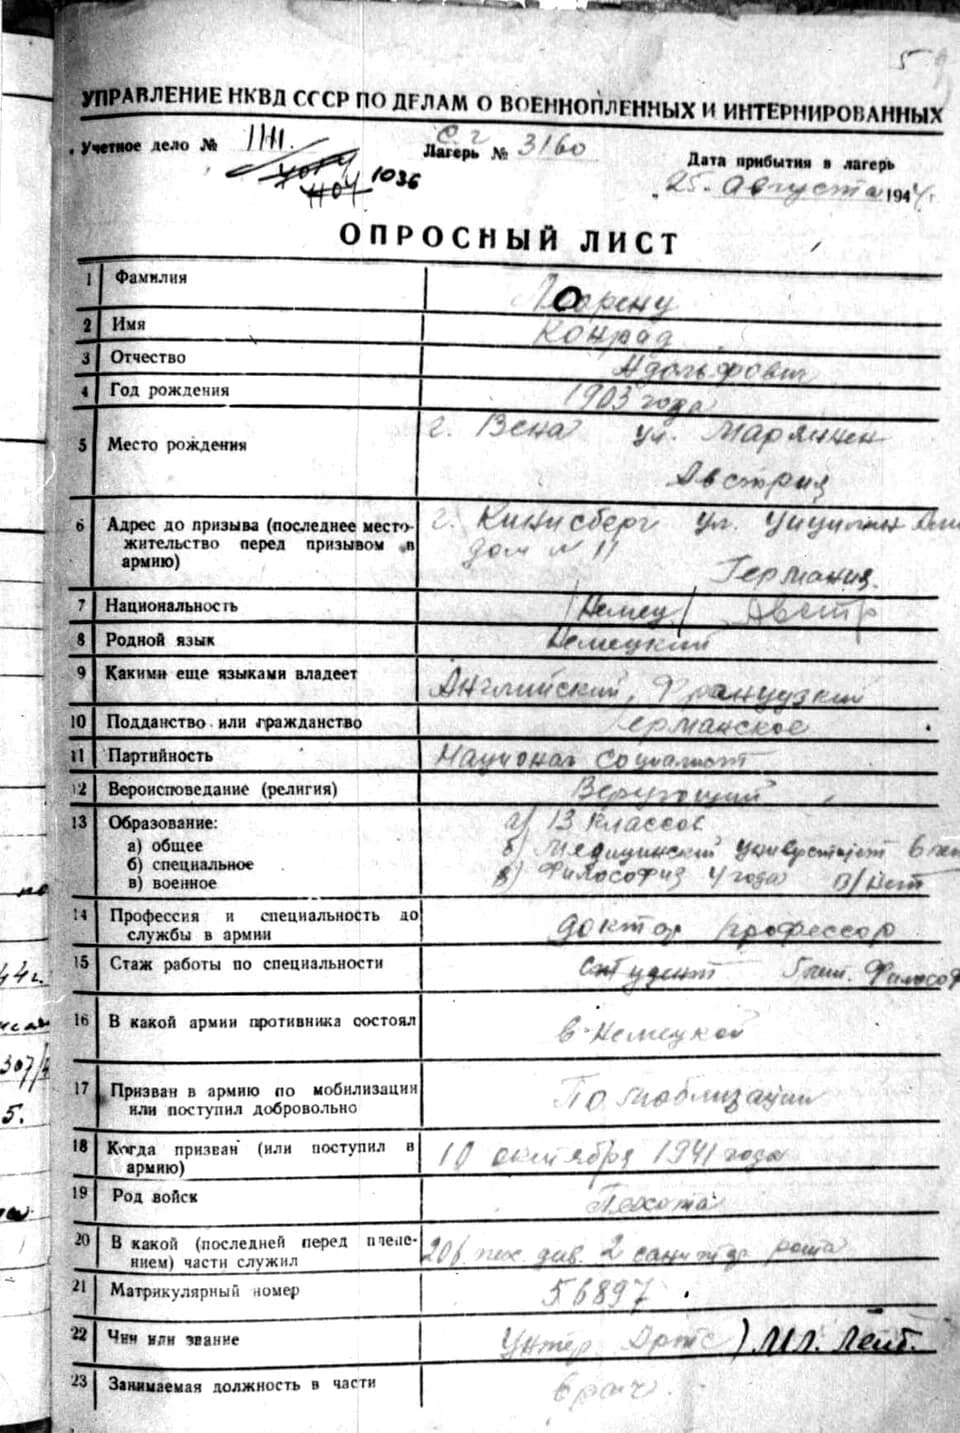 5
УПРАВЛЕНИЕ НКВД СССР ПО ДЕЛАМ О ВОЕННОПЛЕННЫХ И ИНТЕРНИРОВАННЫХ
Учетное дело № 1111. 1036
Лагерь № 3160
Дата прибытия в лагерь
25. августа 1944 г.
ОПРОСНЫЙ ЛИСТ
1 Фамилия Лоренц
2 Имя Конрад
3 Отчество Адольфович
4 Год рождения 1903 года
5 Место рождения г. Вена ул.
Австрия
6 Адрес до призыва (последнее место-
жительство перед призывом в
армию)
г. Кинисберг ул.
дом № 11
Германия.
7 Национальность /Немец/ Австр
8 Родной язык Немецкий
9 Какими еще языками владеет Английский, Французкий
10 Подданство или гражданство Германское
11 Партийность Национал социалист
12 Вероисповедание (религия) Верующий
13 Образование:
а) общее
б) специальное
в) военное
а) 13 классов
б) Медицинский
в) Философия 4 года
14 Профессия и специальность до
службы в армии
доктор профессор
15 Стаж работы по специальности студент
16 В какой армии противника состоял в Немецкой
17 Призван в армию по мобилизации
или поступил добровольно
По моблизации
18 Когда призван (или поступил в
армию)
10 октября 1941 года
19 Род войск Пехота
20 В какой (последней перед плене-
нием) части служил
206. пех. див. 2 рота
21 Матрикулярный номер 56897
22 Чин или звание Унтер Артс) Мл. Лейт.
23 Занимаемая должность в части врач.
44г.
307/
5.